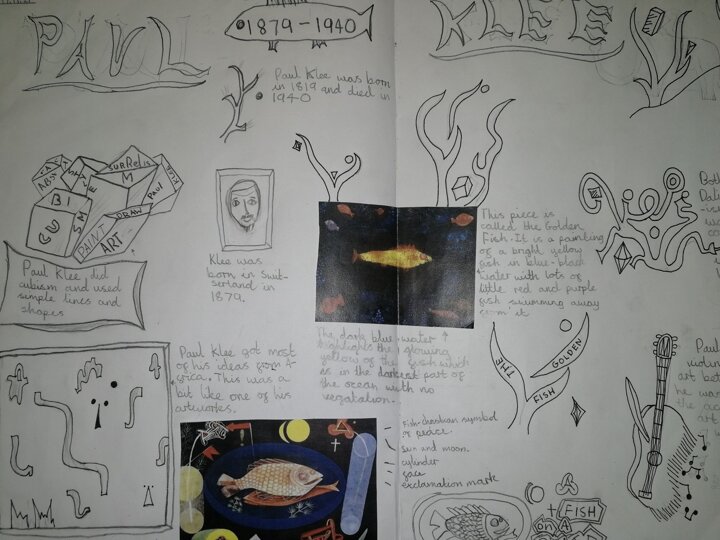 PAUL
KLEE
1879-1940
Paul Klee was born
in 1819 and died in
1940
SURREALIS
M
KLEE
PAUL
CU
BI
SM
DRAW
PAINT
ART
Paul Klee did
cubism and used
simple lines and
shapes
Klee was
born in Swit-
serland in
1879.
This piece is
called the Golden
Fish. It is a painting
of a bright yellow
fish in blue-black
water with lots of
little red and purple
fish swimming away
from it
The dark blue water
highlights the glowing
yellow of the fish which
is in the darkest part of
the ocean with no
vegetation.
Paul Klee got most
of his ideas from A-
frica. This was a
bit like one of his
artworks.
THE
GOLDEN
FISH
Fish-christian symbol
of peace.
Sun and moon.
cylinder
face
exclamation mark
+ FISH
on A
Both
Paul
violin
art bet
he wa
the ac
art